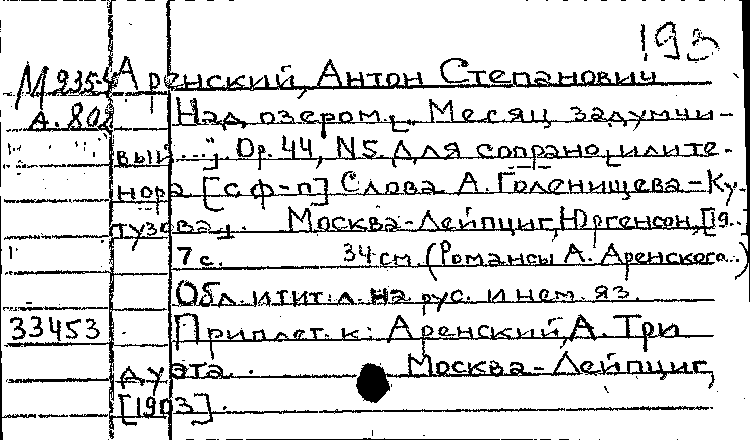 193
М 935-4 Аренский, Антон Степанович
А. 802 Над озером. „Месяц задумчи-
вый..." Ор. 44, N5. Для сопрано или те-
нора [с ф-п] Слова А. Голенищева-Ку-
тузова. Москва-Лейпциг, Юргенсон, [19..]
7 с. 34 см. (Романсы А. Аренского..)
Обл. и тит. л. на рус. и нем. яз.
33453 Приплет. к: Аренский, А. Три
дуэта. Москва-Лейпциг,
[1903].